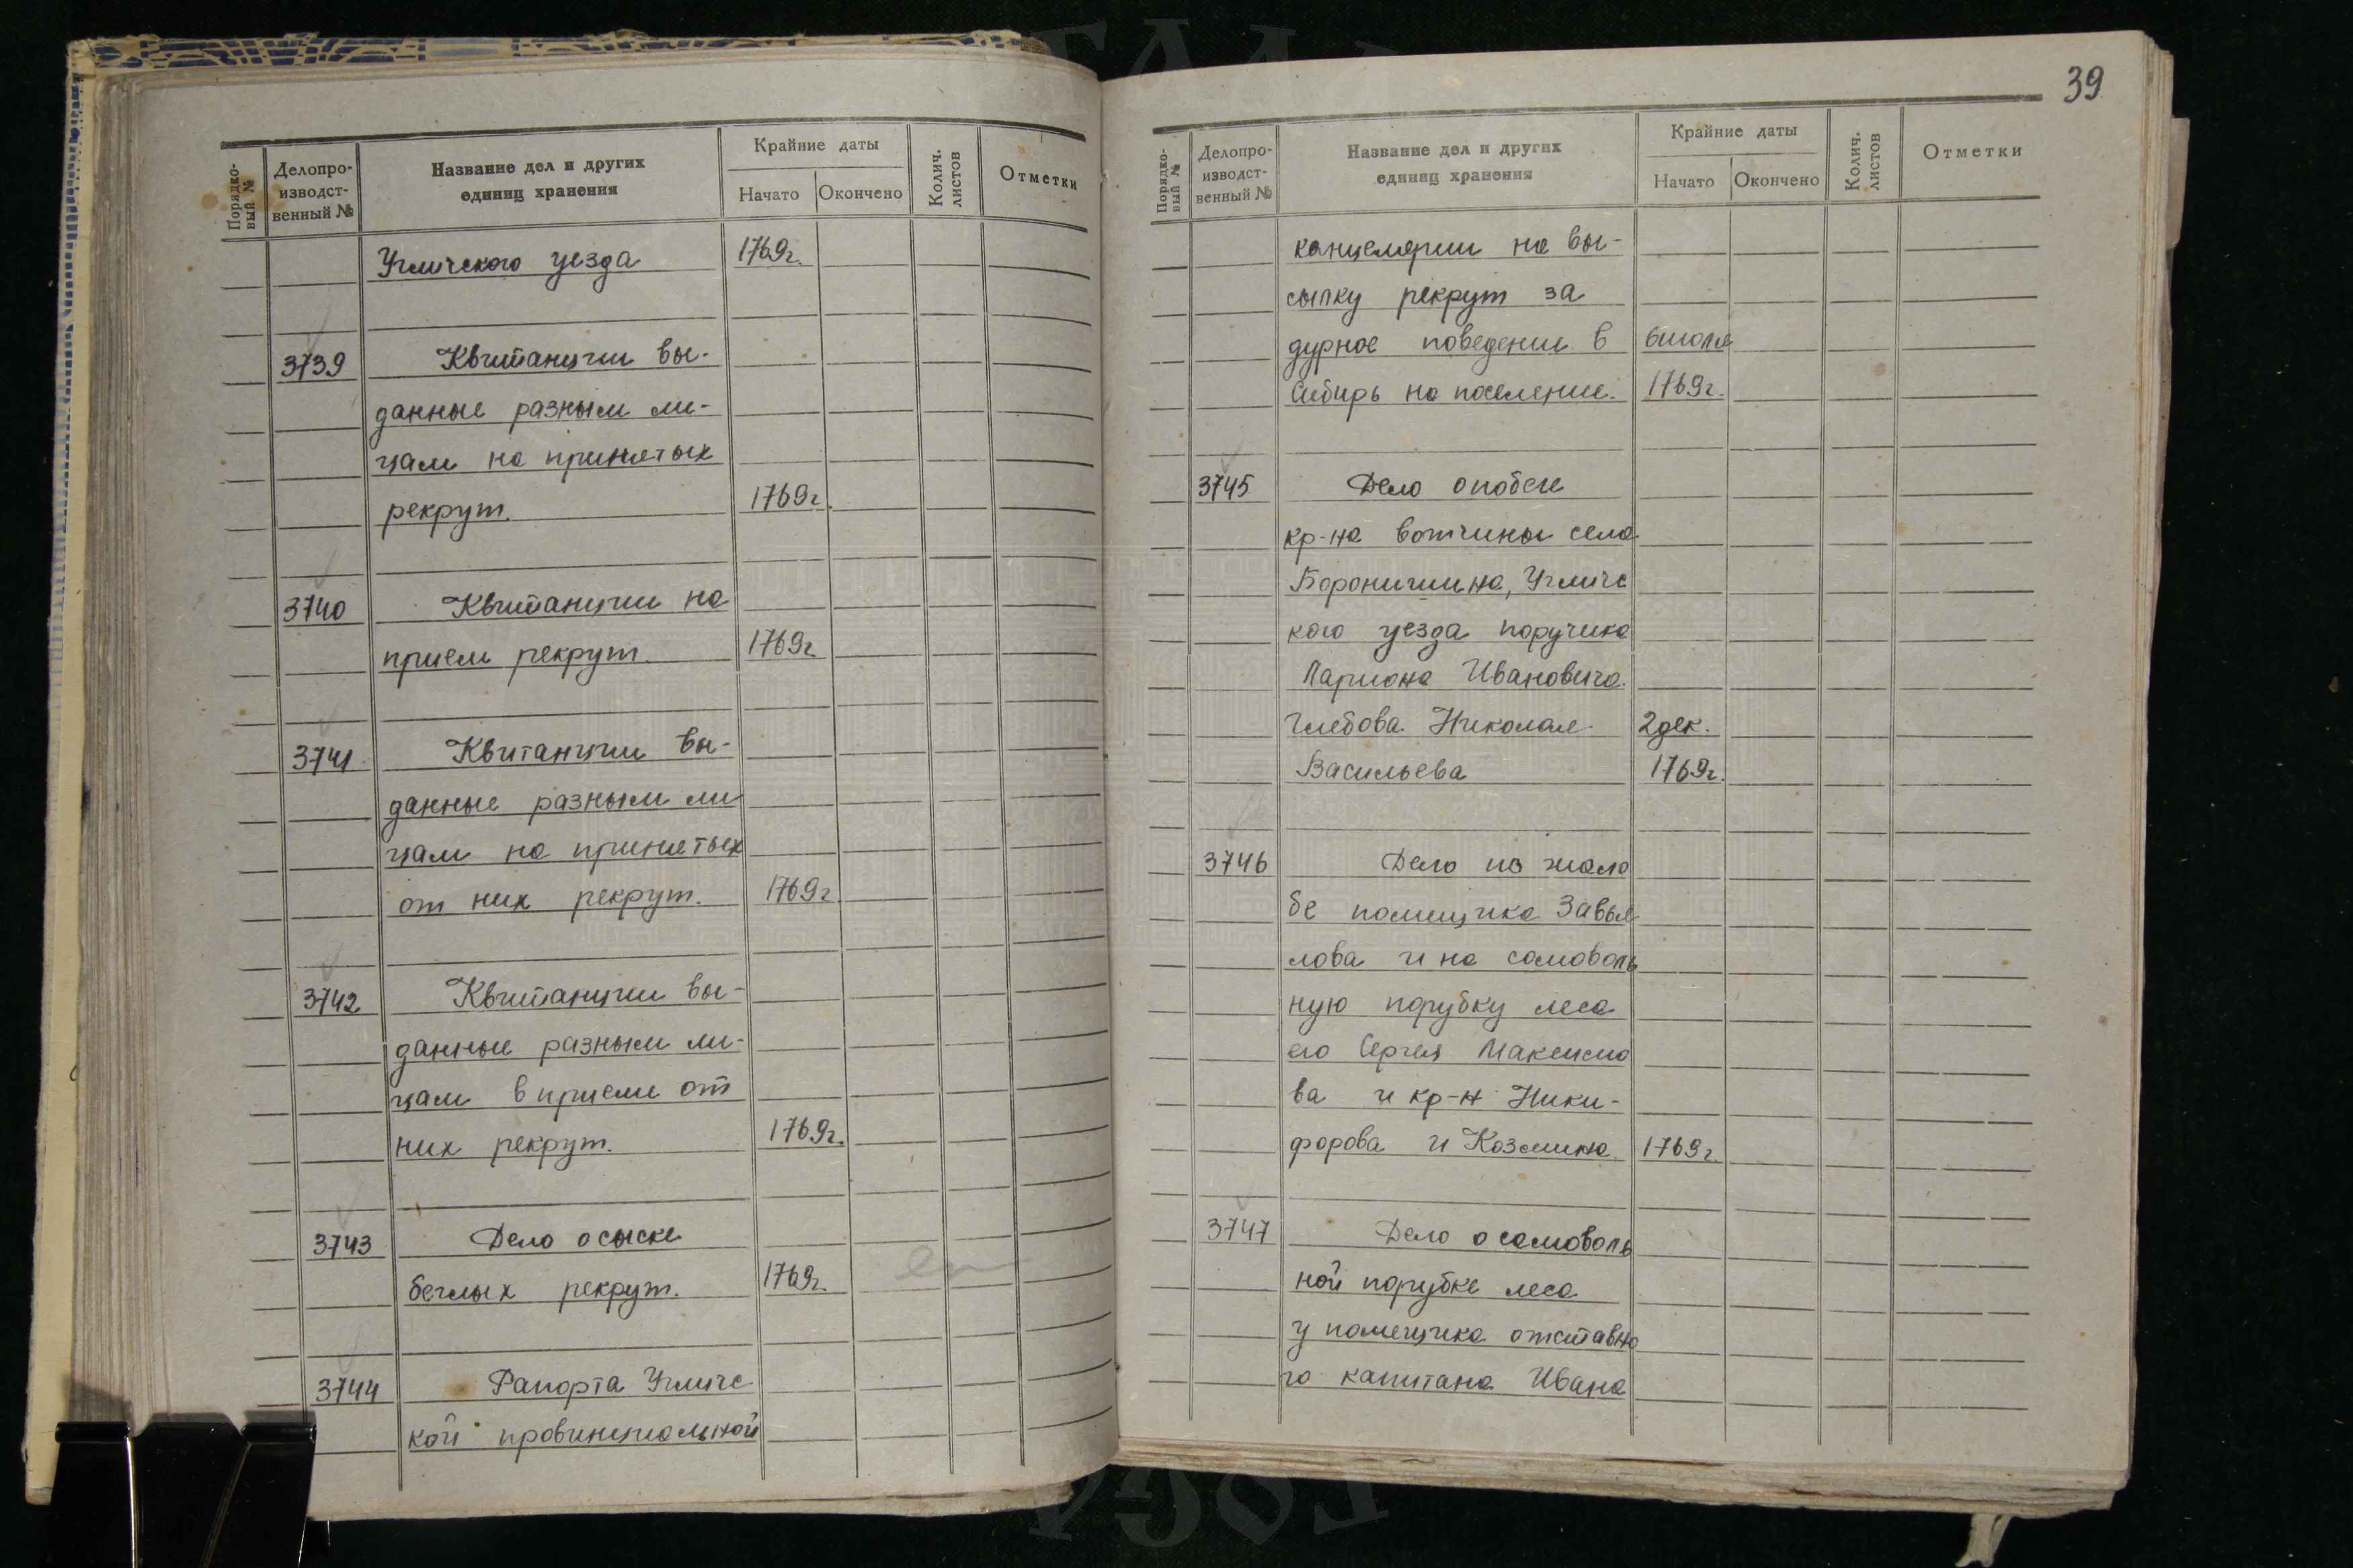 Порядко-
вый №
Делопро-
изводст-
венный №
Название дел и других
единиц хранения
Крайние даты
Начато Окончено
Колич.
листов
Отметки
Угличского уезда 1769г.
3739 Квитанции вы-
данные разным ли-
цам на принятых
рекрут. 1769г.
3740 Квитанции на
прием рекрут. 1769г
3741 Квитанции вы-
данные разным ли
цам на принятых
от них рекрут. 1769г
3742 Квитанции вы-
данные разным ли-
цам в приеме от
них рекрут. 1769г.
3743 Дело о сыске
беглых рекрут. 1769г.
3744 Рапорта Угличс
кой провинциальной
39
Порядко-
вый №
Делопро-
изводст-
венный №
Название дел и других
единиц хранения
Крайние даты
Начато Окончено
Колич.
листов
Отметки
канцелярии на вы-
сылку рекрут за
дурное поведении в 6июля
Сибирь на поселение. 1769г.
3745 Дело о побеге
кр-на вотчины села
Бороничина, Угличс
кого уезда поручика
Лариона Ивановича
Глебова Николая 2дек.
Васильева 1769г.
3746 Дело по жало
бе помещика Завья
лова и на самоволь
ную порубку леса
его Сергея Максимо
ва и кр-н Ники-
форова и Козмина 1769г.
3747 Дело о самоволь
ной порубке леса
у помещика отставно
го капитана Ивана